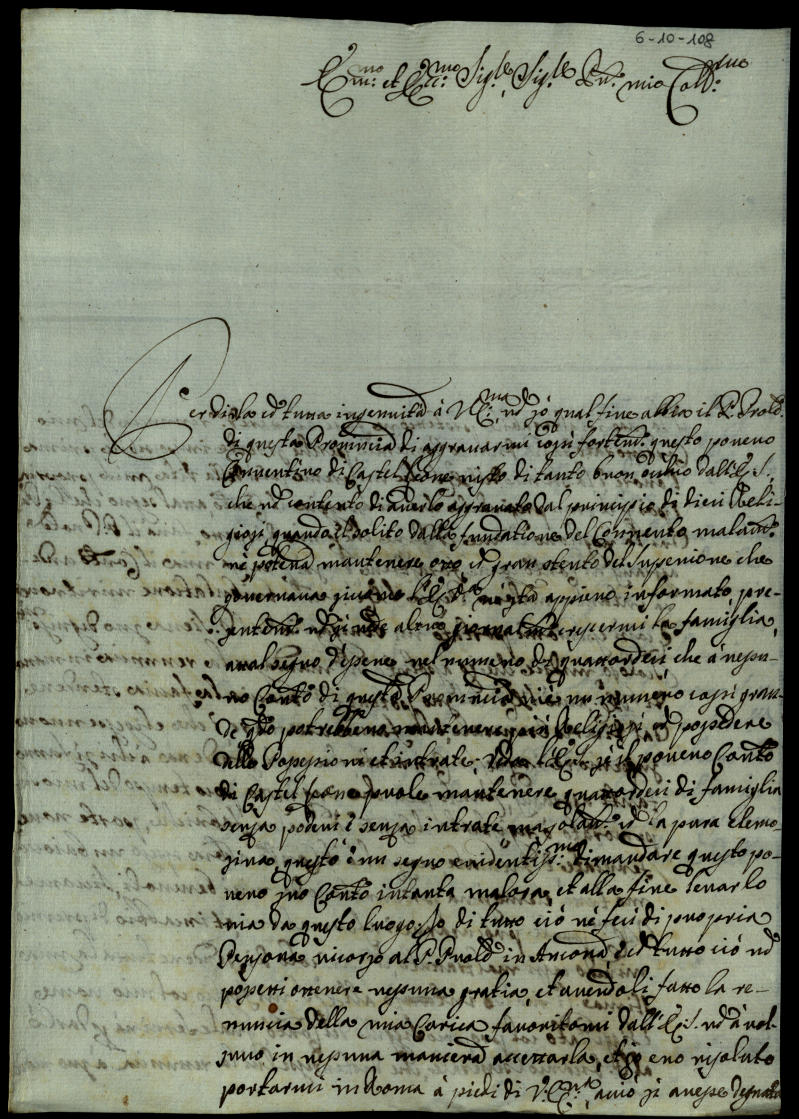 6-10-108
Em.mo et Ecc.mo Sig.re, Sig.re P.ne mio Coll.mo
Per dirla cõ tutta ingenuità à V.E.ma nõ sò qual fine abbia il P. Proãl.
di questa Provincia di aggravarmi così fortem.te questo povero
Conventino di Castel Leone visto di tanto buon occhio dall'E.S.
che nõ contento di averlo aggravato dal principio di dieci Reli-
giosi, quando il solito dalla fundatione del Convento malam.te
ne potevã mantenere otto cõ gran stento del Superiore che
governava appieno informato pre-
sentem.te crescermi la famiglia,
à tal segno d'essere nel numero di quattordeci che à nessu-
no Conto di questa Provincia numero così gran-
de che potrebbero mantenere più Religiosi cõ possedere
delle Possessioni et intrate il povero Conto
di Castel Leone puole mantenere quattordeci di famiglia
senza poderi è senza intrate mà solam.te cõ la pura elemo-
zina, questo è un segno evidentiss.mo di mandare questo po-
vero suo Conto in tanta malora, et alla fine levarlo
via da questo luogo. Io di tutto ciò ne feci di propria
Persona ricorso al P. Proãl. in Anconã et cõ tutto ciò nõ
possetti ottenere nessuna gratia, et avendoli fatto la re-
nuncia della mia Carica favoritomi dall'E.S. nõ à vol-
suto in nessuna manierã accettarla, et io ero risoluto
portarmi in Roma à piedi di V.E.ma, acciò si avesse degnata